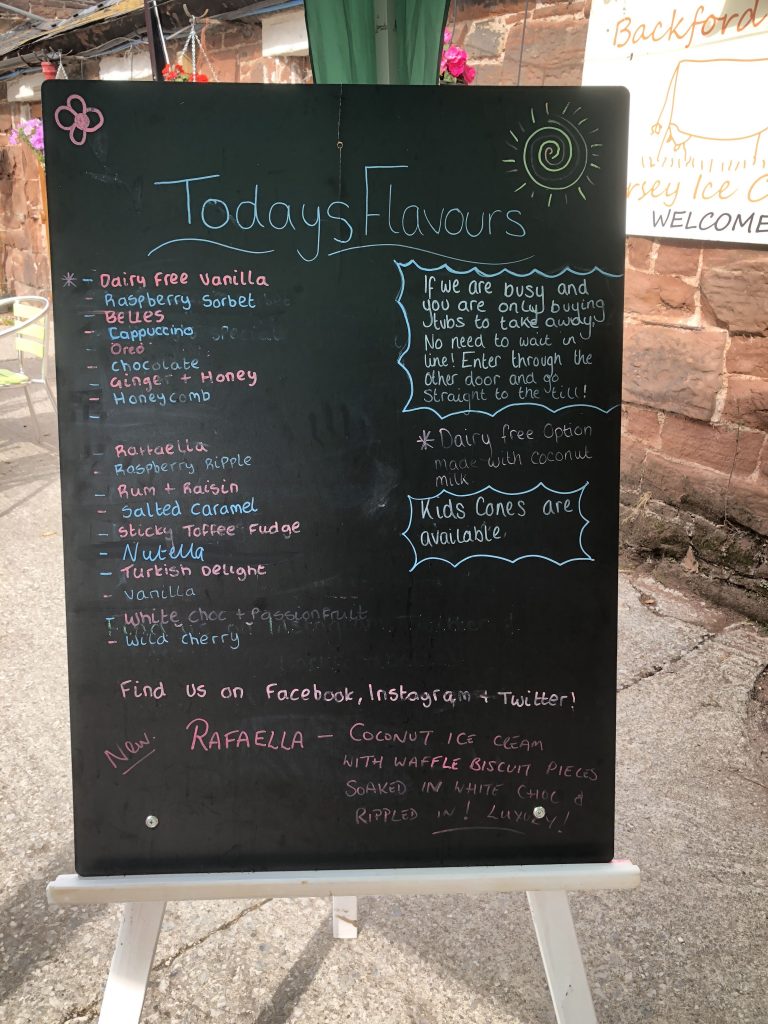 Backford
Jersey Ice C
WELCOME
Todays Flavours
* - Dairy Free Vanilla
- Raspberry Sorbet
- Belles
- Cappuccino
- Oreo
- Chocolate
- Ginger + Honey
- Honeycomb
-
- Raffaella
- Raspberry Ripple
- Rum + Raisin
- Salted Caramel
- Sticky Toffee Fudge
- Nutella
- Turkish Delight
- Vanilla
- White Choc + Passionfruit
- Wild Cherry
If we are busy and
you are only buying
tubs to take away,
No need to wait in
line! Enter through the
other door and go
straight to the till!
* Dairy free Option
made with coconut
milk
Kids Cones are
available.
Find us on Facebook, Instagram + Twitter!
New. RAFAELLA – COCONUT ICE CREAM
WITH WAFFLE BISCUIT PIECES
SOAKED IN WHITE CHOC &
RIPPLED IN! LUXURY!